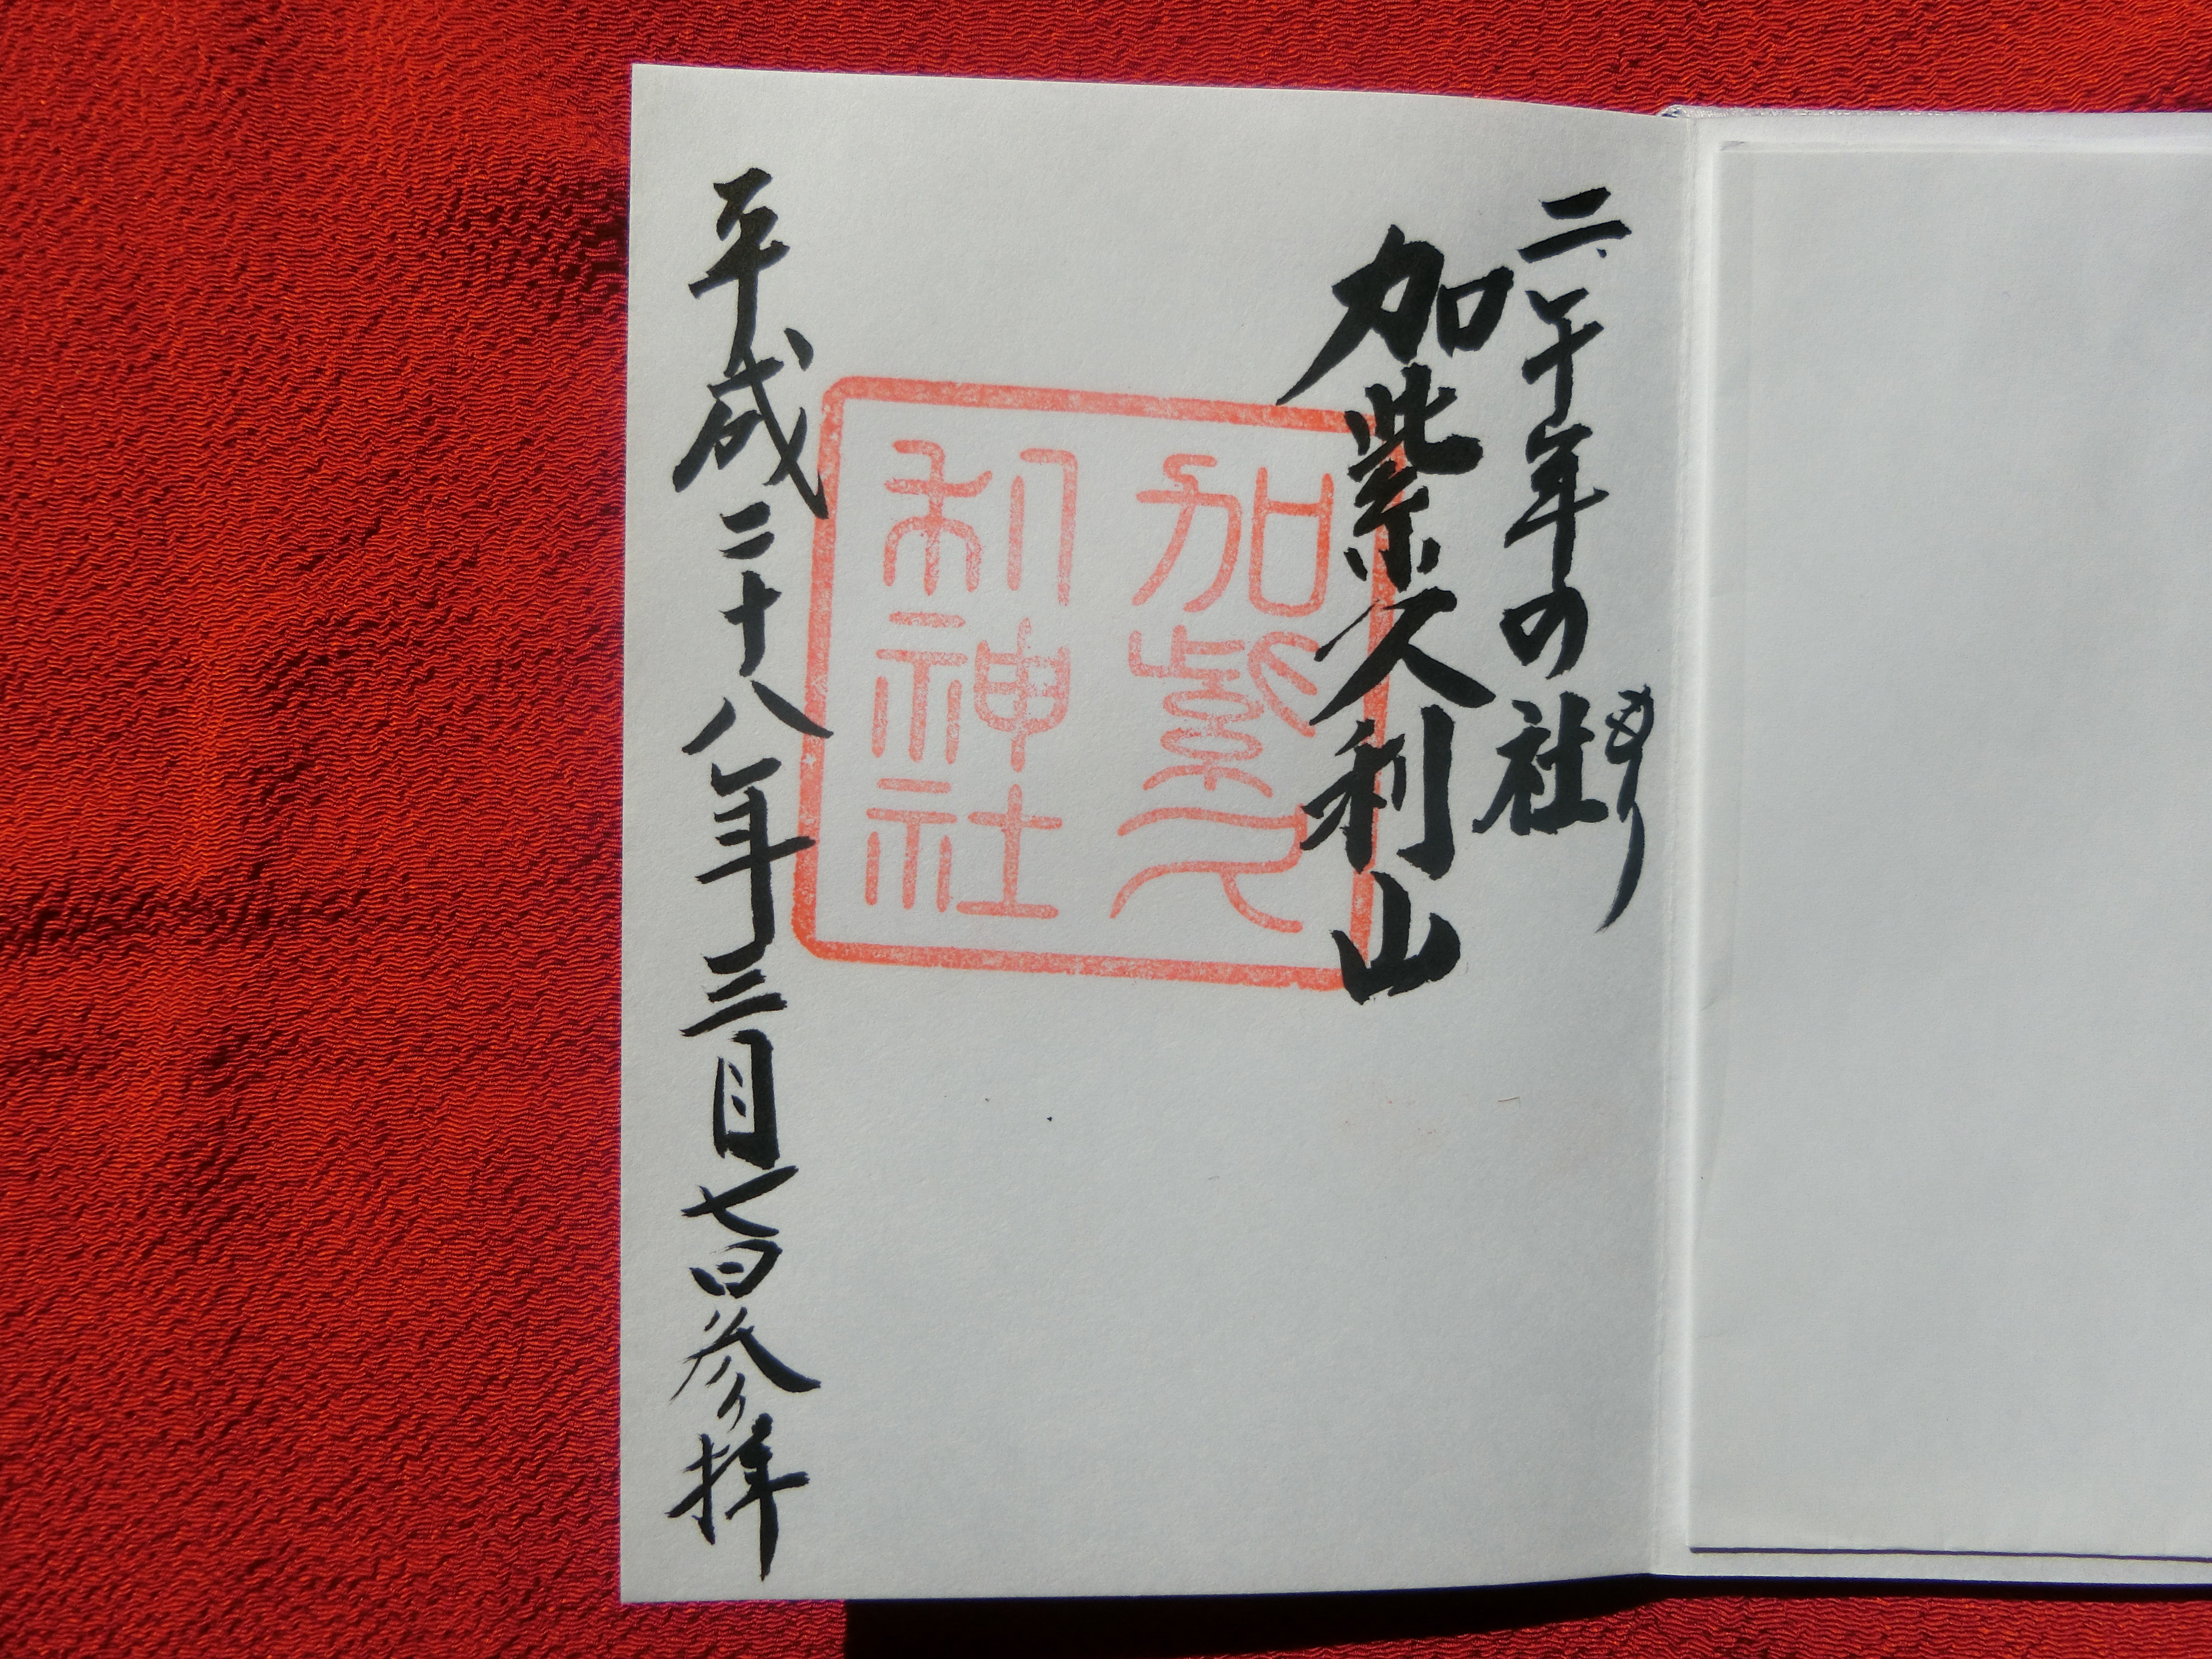 二千年の社
もり
加紫久利山
加紫久
利神社
平成二十八年三月七日参拝